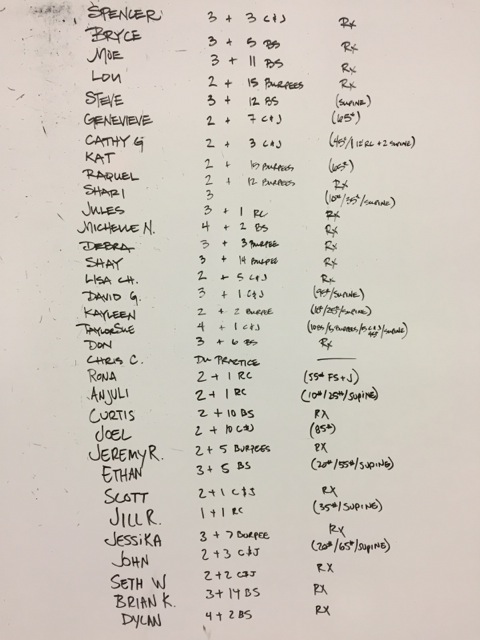 SPENCER 3 + 3 C&J Rx
BRYCE 3 + 5 BS Rx
MOE 3 + 11 BS Rx
LOU 2 + 15 BURPEES Rx
STEVE 3 + 12 BS (SUPINE)
GENEVIEVE 2 + 7 C&J (65#)
CATHY G 2 + 3 C&J (45#/ RC + 2 SUPINE)
KAT 2 + 10 BURPEES (65#)
RAQUEL 2 + 12 BURPEES Rx
SHARI 3 (10#/35#/SUPINE)
JULES 3 + 1 RC Rx
MICHELLE N. 4 + 2 BS Rx
DEBRA 3 + 3 BURPEE Rx
SHAY 3 + 14 BURPEE Rx
LISA CH. 2 + 5 C&J Rx
DAVID G. 3 + 1 C&J (95#/SUPINE)
KAYLEEN 2 + 2 BURPEE (10#/25#/SUPINE)
TAYLORSUE 4 + 1 C&J (10BS/ BURPEES/ C&J /SUPINE)
DON 3 + 6 BS Rx
CHRIS C. DU PRACTICE
RONA 2 + 1 RC (55# FS+J)
ANJULI 2 + 1 RC (10#/25#/SUPINE)
CURTIS 2 + 10 BS RX
JOEL 2 + 10 C&J (85#)
JEREMY R. 2 + 5 BURPEES RX
ETHAN 3 + 5 BS (20#/55#/SUPINE)
SCOTT 2 + 1 C&J RX
JILL R. 1 + 1 RC (35#/SUPINE)
JESSIKA 3 + 7 BURPEE RX
JOHN 2 + 3 C&J (20#/65#/SUPINE)
SETH W 2 + 2 C&J RX
BRIAN K. 3 + 14 BS RX
DYLAN 4 + 2 BS RX